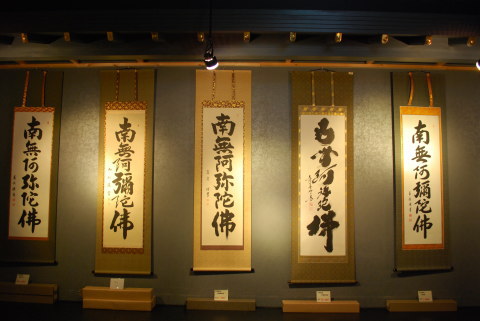 南無阿弥陀佛
南無阿彌陀佛
南無阿弥陀佛
南無阿弥陀佛
南無阿彌陀佛